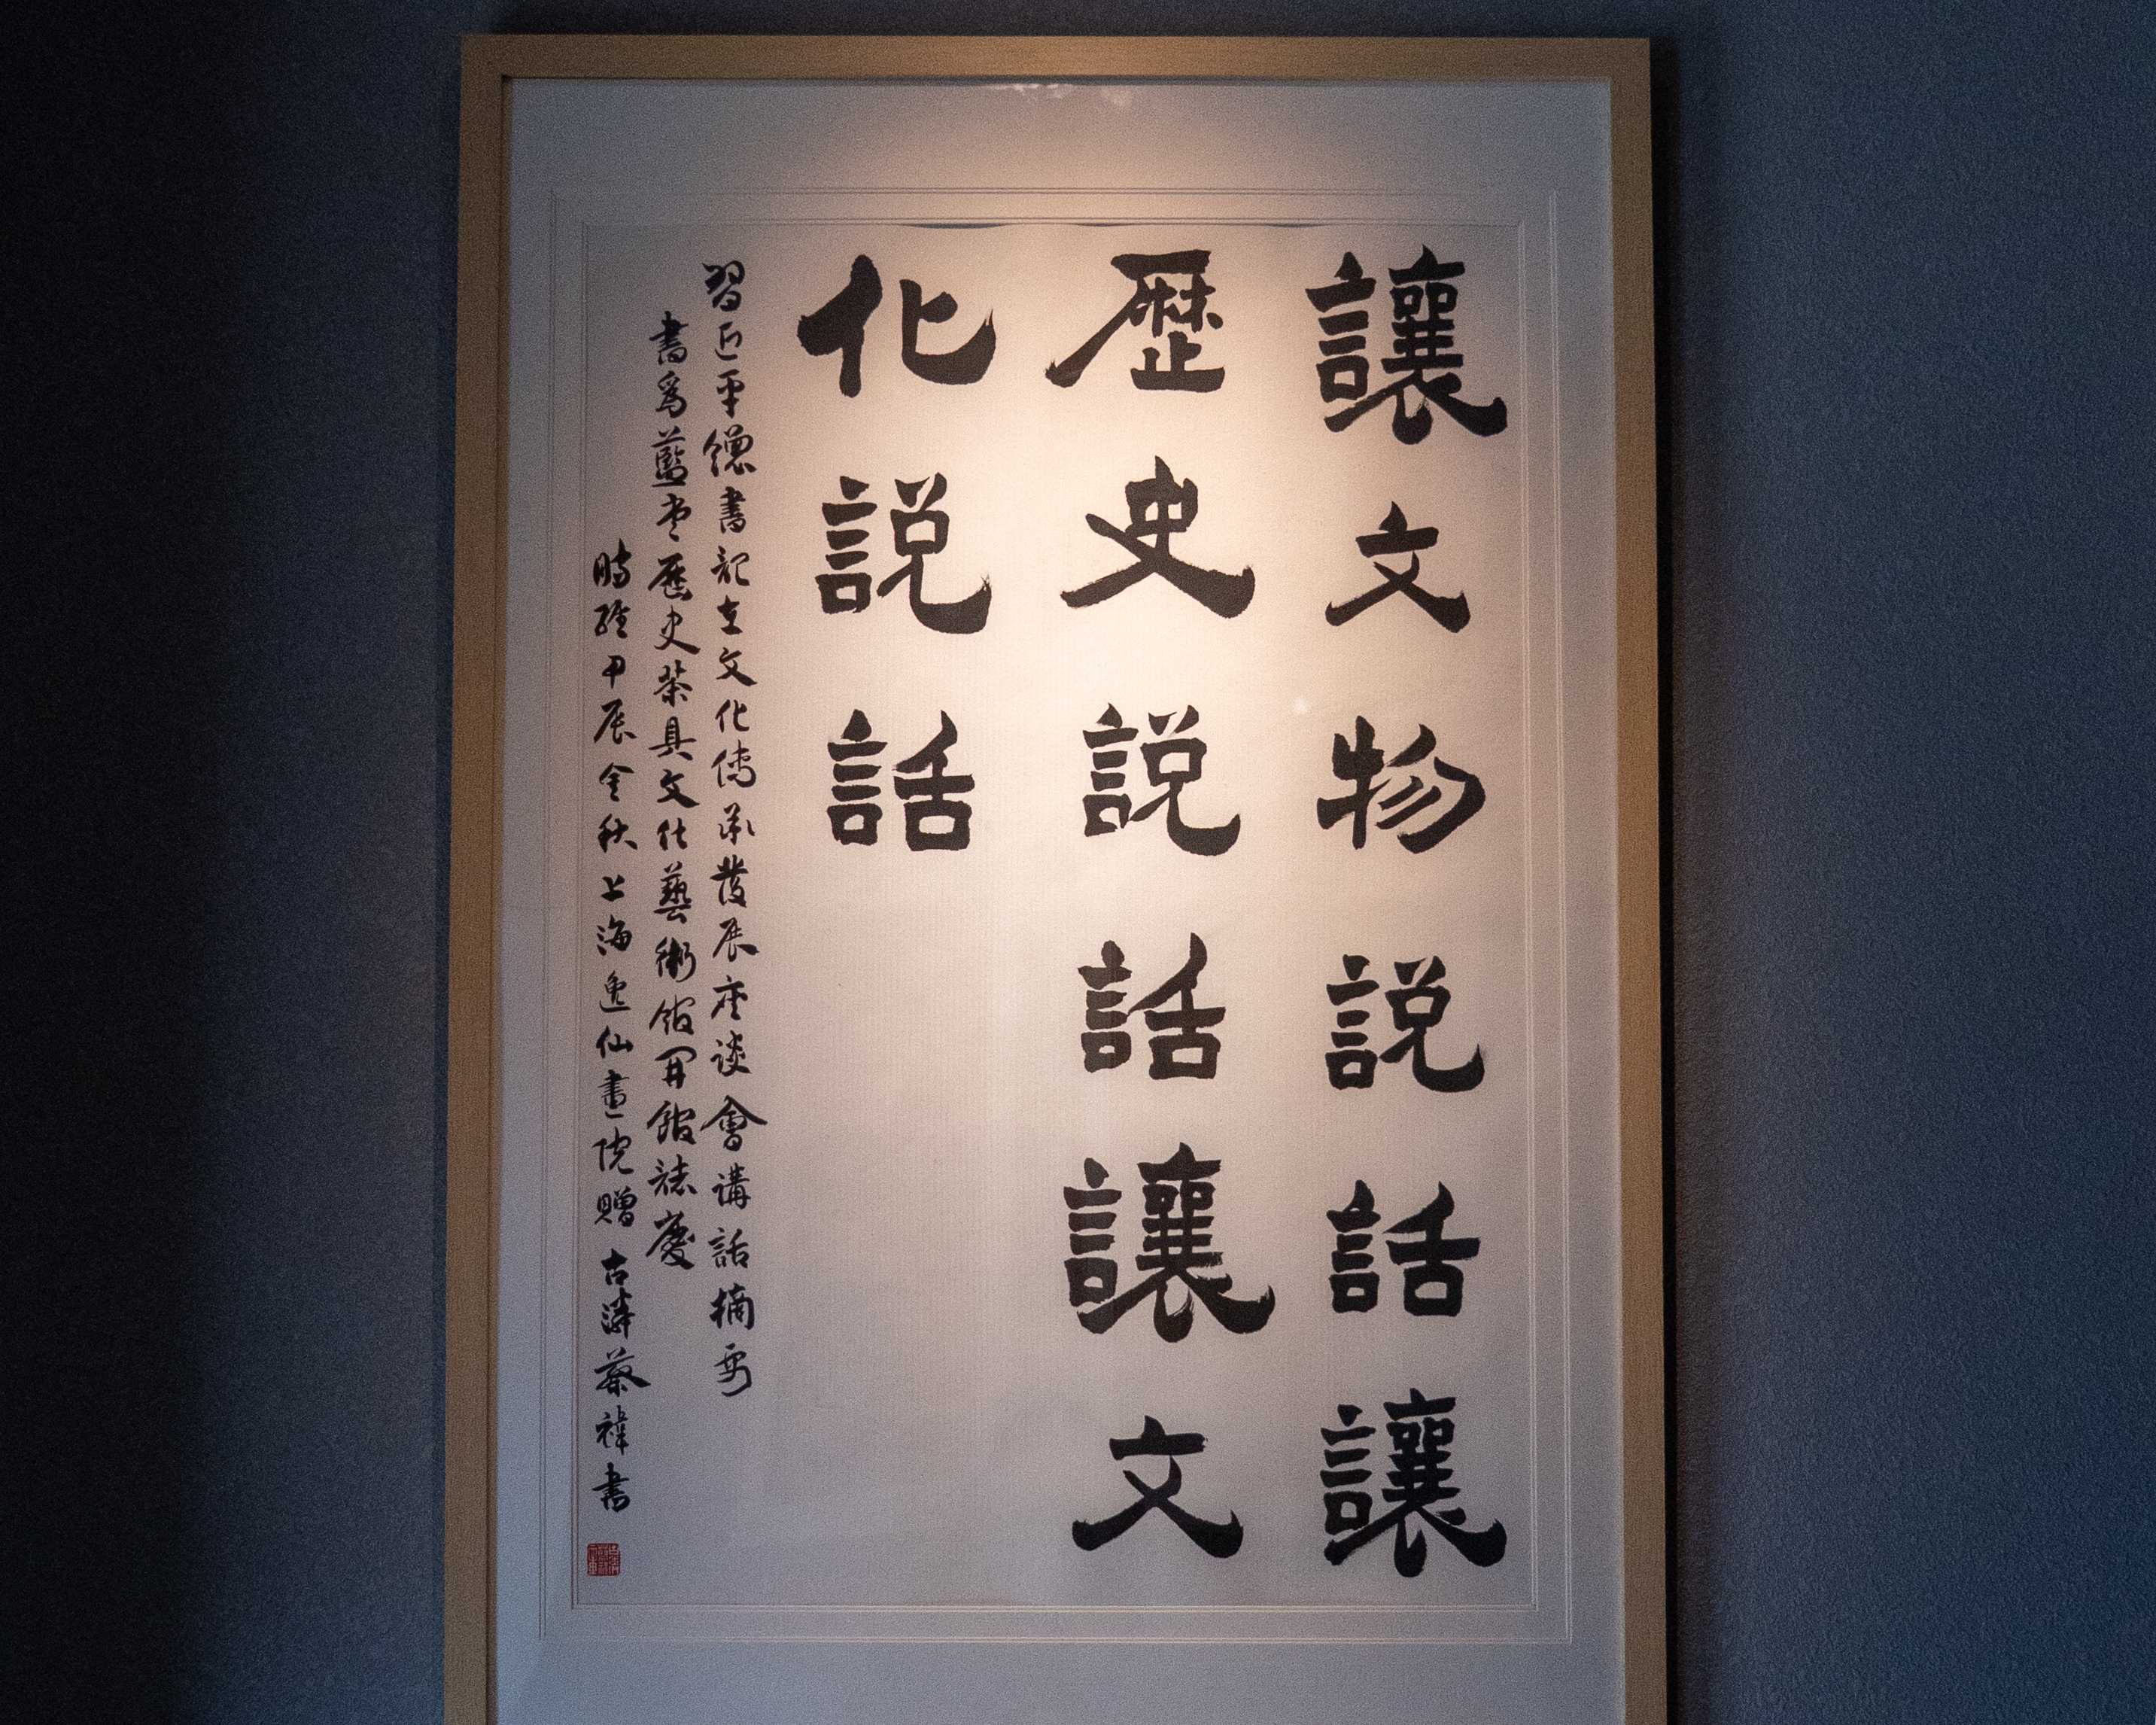 讓文物説話讓
歷史説話讓文
化説話
習近平總書記在文化傳承發展座談會講話摘要
書爲藍堂歷史茶具文化藝術館開館誌慶
時維甲辰金秋上海逸仙畫院贈 古濤蔡禕書